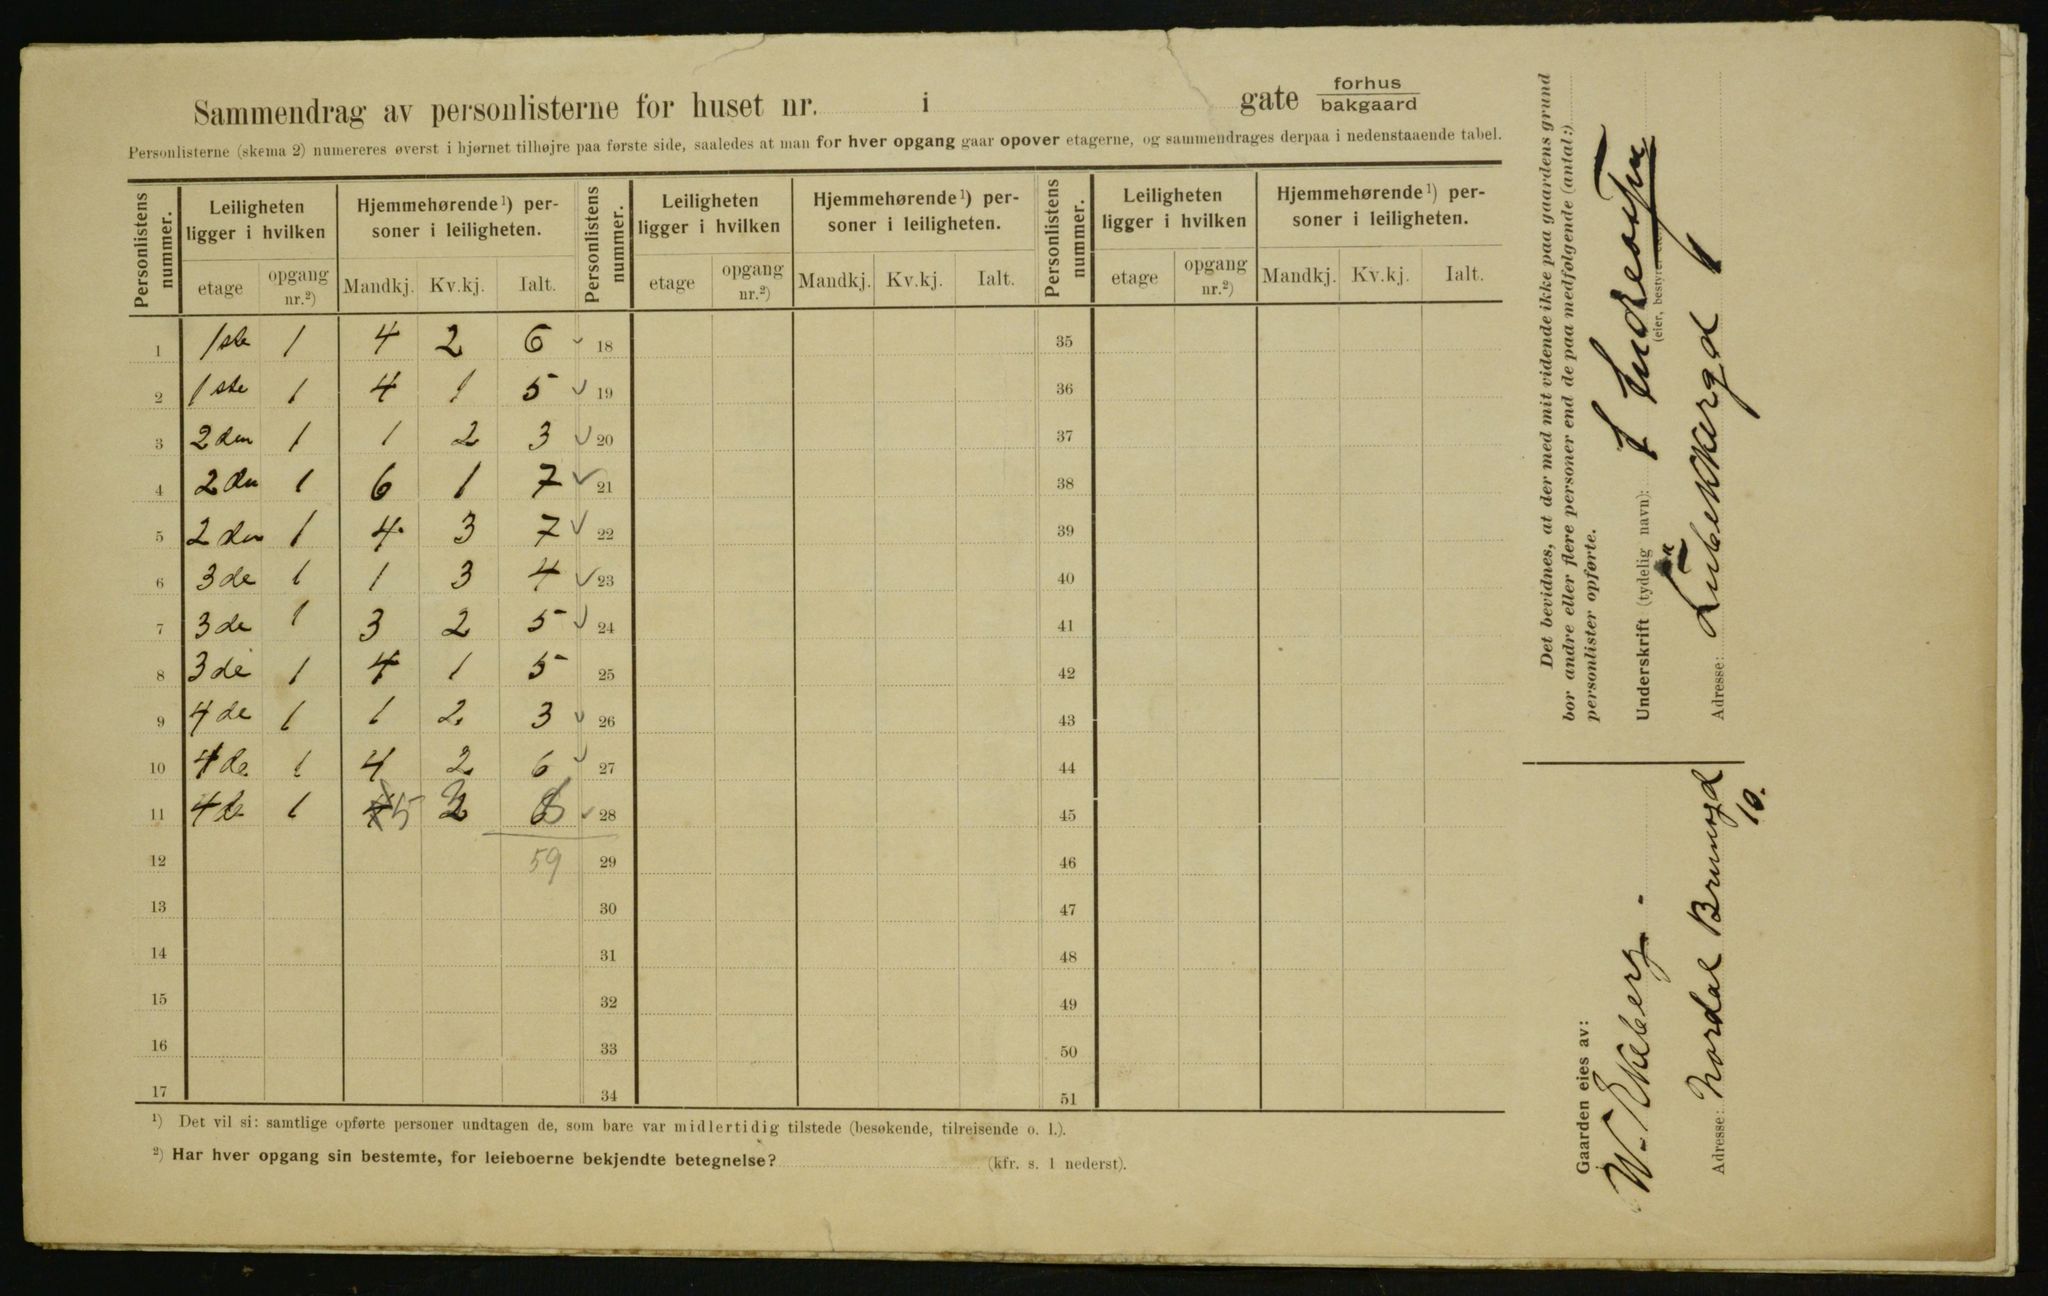 Sammendrag av personlisterne for huset nr. i gate forhus bakgaard
Personlisterne (skema 2) numereres øverst i hjørnet tilhøjre paa første side, saaledes at man for hver opgang gaar opover etagerne, og sammendrages derpaa i nedenstaaende tabel.
Personlistens nummer. Leiligheten ligger i hvilken Hjemmehørende¹) personer i leiligheten. Personlistens nummer. Leiligheten ligger i hvilken Hjemmehørende¹) personer i leiligheten. Personlistens nummer. Leiligheten ligger i hvilken Hjemmehørende¹) personer i leiligheten.
etage opgang nr.²) Mandkj. Kv.kj. Ialt. etage opgang nr.²) Mandkj. Kv.kj. Ialt. etage opgang nr.²) Mandkj. Kv.kj. Ialt.
1 1ste 1 4 2 6 18 35
2 1ste 1 4 1 5 19 36
3 2den 1 1 2 3 20 37
4 2den 1 6 1 7 21 38
5 2den 1 4 3 7 22 39
6 3de 1 1 3 4 23 40
7 3de 1 3 2 5 24 41
8 3de 1 4 1 5 25 42
9 4de 1 1 2 3 26 43
10 4de 1 4 2 6 27 44
11 4de 1 5 3 8 28 45
12 59 29 46
13 30 47
14 31 48
15 32 49
16 33 50
17 34 51
¹) Det vil si: samtlige opførte personer undtagen de, som bare var midlertidig tilstede (besøkende, tilreisende o. l.).
²) Har hver opgang sin bestemte, for leieboerne bekjendte betegnelse? (kfr. s. 1 nederst).
Det bevidnes, at der med mit vidende ikke paa gaardens grund
bor andre eller flere personer end de paa medfølgende (antal:)
personlister opførte.
Underskrift (tydelig navn):
(eier, bestyrer
Adresse: Lübekkergd 4
Gaarden eies av:
W. Ekeberg.
Adresse: Nordal Brunsgd
10.